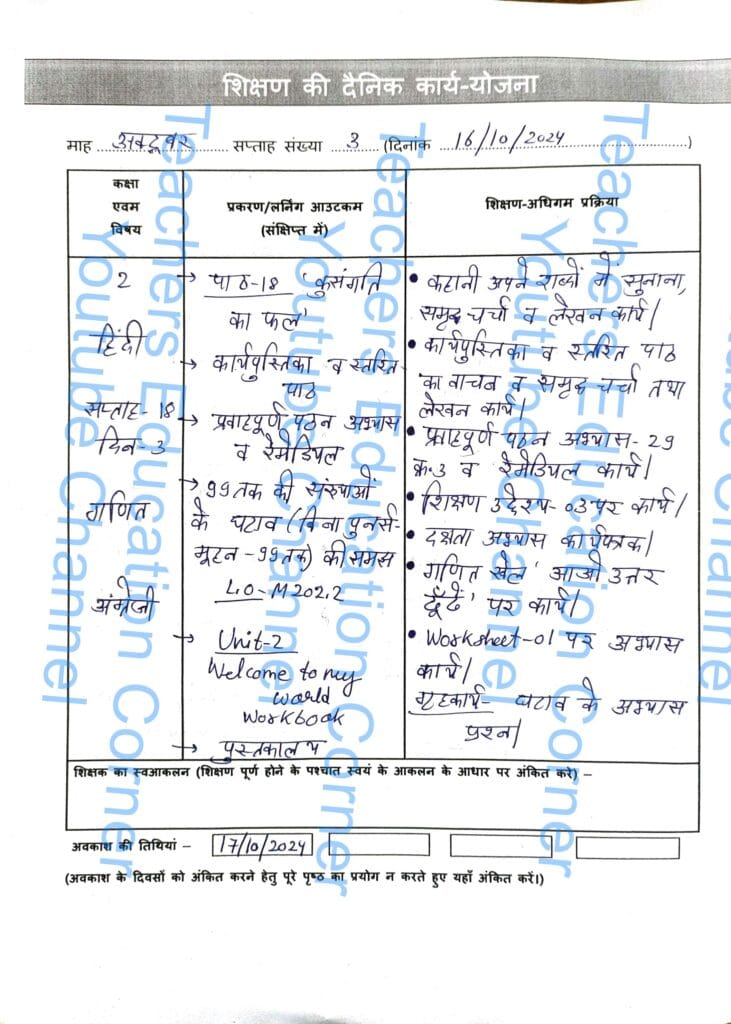 शिक्षण की दैनिक कार्य-योजना
माह अक्टूबर सप्ताह संख्या 3 (दिनांक 16/10/2024)
कक्षा
एवम
विषय
प्रकरण/लर्निंग आउटकम
(संक्षिप्त में)
शिक्षण-अधिगम प्रक्रिया
2
हिंदी
सप्ताह-18
दिन-3
गणित
अंग्रेजी
→ पाठ-18 'कुसंगति
का फल'
→ कार्यपुस्तिका व स्तरित
पाठ
→ प्रवाहपूर्ण पठन अभ्यास
व रेमेडियल
→ 99 तक की संख्याओं
के घटाव (बिना पुनर्स-
मूहन - 99 तक) की समझ
L.O-M202.2
→ Unit-2
Welcome to my
world
Workbook
→ पुस्तकालय
• कहानी अपने शब्दों में सुनाना,
समृद्ध चर्चा व लेखन कार्य।
• कार्यपुस्तिका व स्तरित पाठ
का वाचन व समृद्ध चर्चा तथा
लेखन कार्य।
• प्रवाहपूर्ण पठन अभ्यास-29
क्र.3 व रेमेडियल कार्य।
• शिक्षण उद्देश्य-03 पर कार्य।
• दक्षता अभ्यास कार्यपत्रक।
• गणित खेल 'आओ उत्तर
ढूँढें' पर कार्य।
• Worksheet-01 पर अभ्यास
कार्य।
गृहकार्य- घटाव के अभ्यास
प्रश्न।
शिक्षक का स्वआकलन (शिक्षण पूर्ण होने के पश्चात स्वयं के आकलन के आधार पर अंकित करे) –
अवकाश की तिथियां – 17/10/2024
(अवकाश के दिवसों को अंकित करने हेतु पूरे पृष्ठ का प्रयोग न करते हुए यहाँ अंकित करें।)
Teachers Education Corner
Youtube Channel
Teachers Education Corner
Youtube Channel
Teachers Education Corner
Youtube Channel